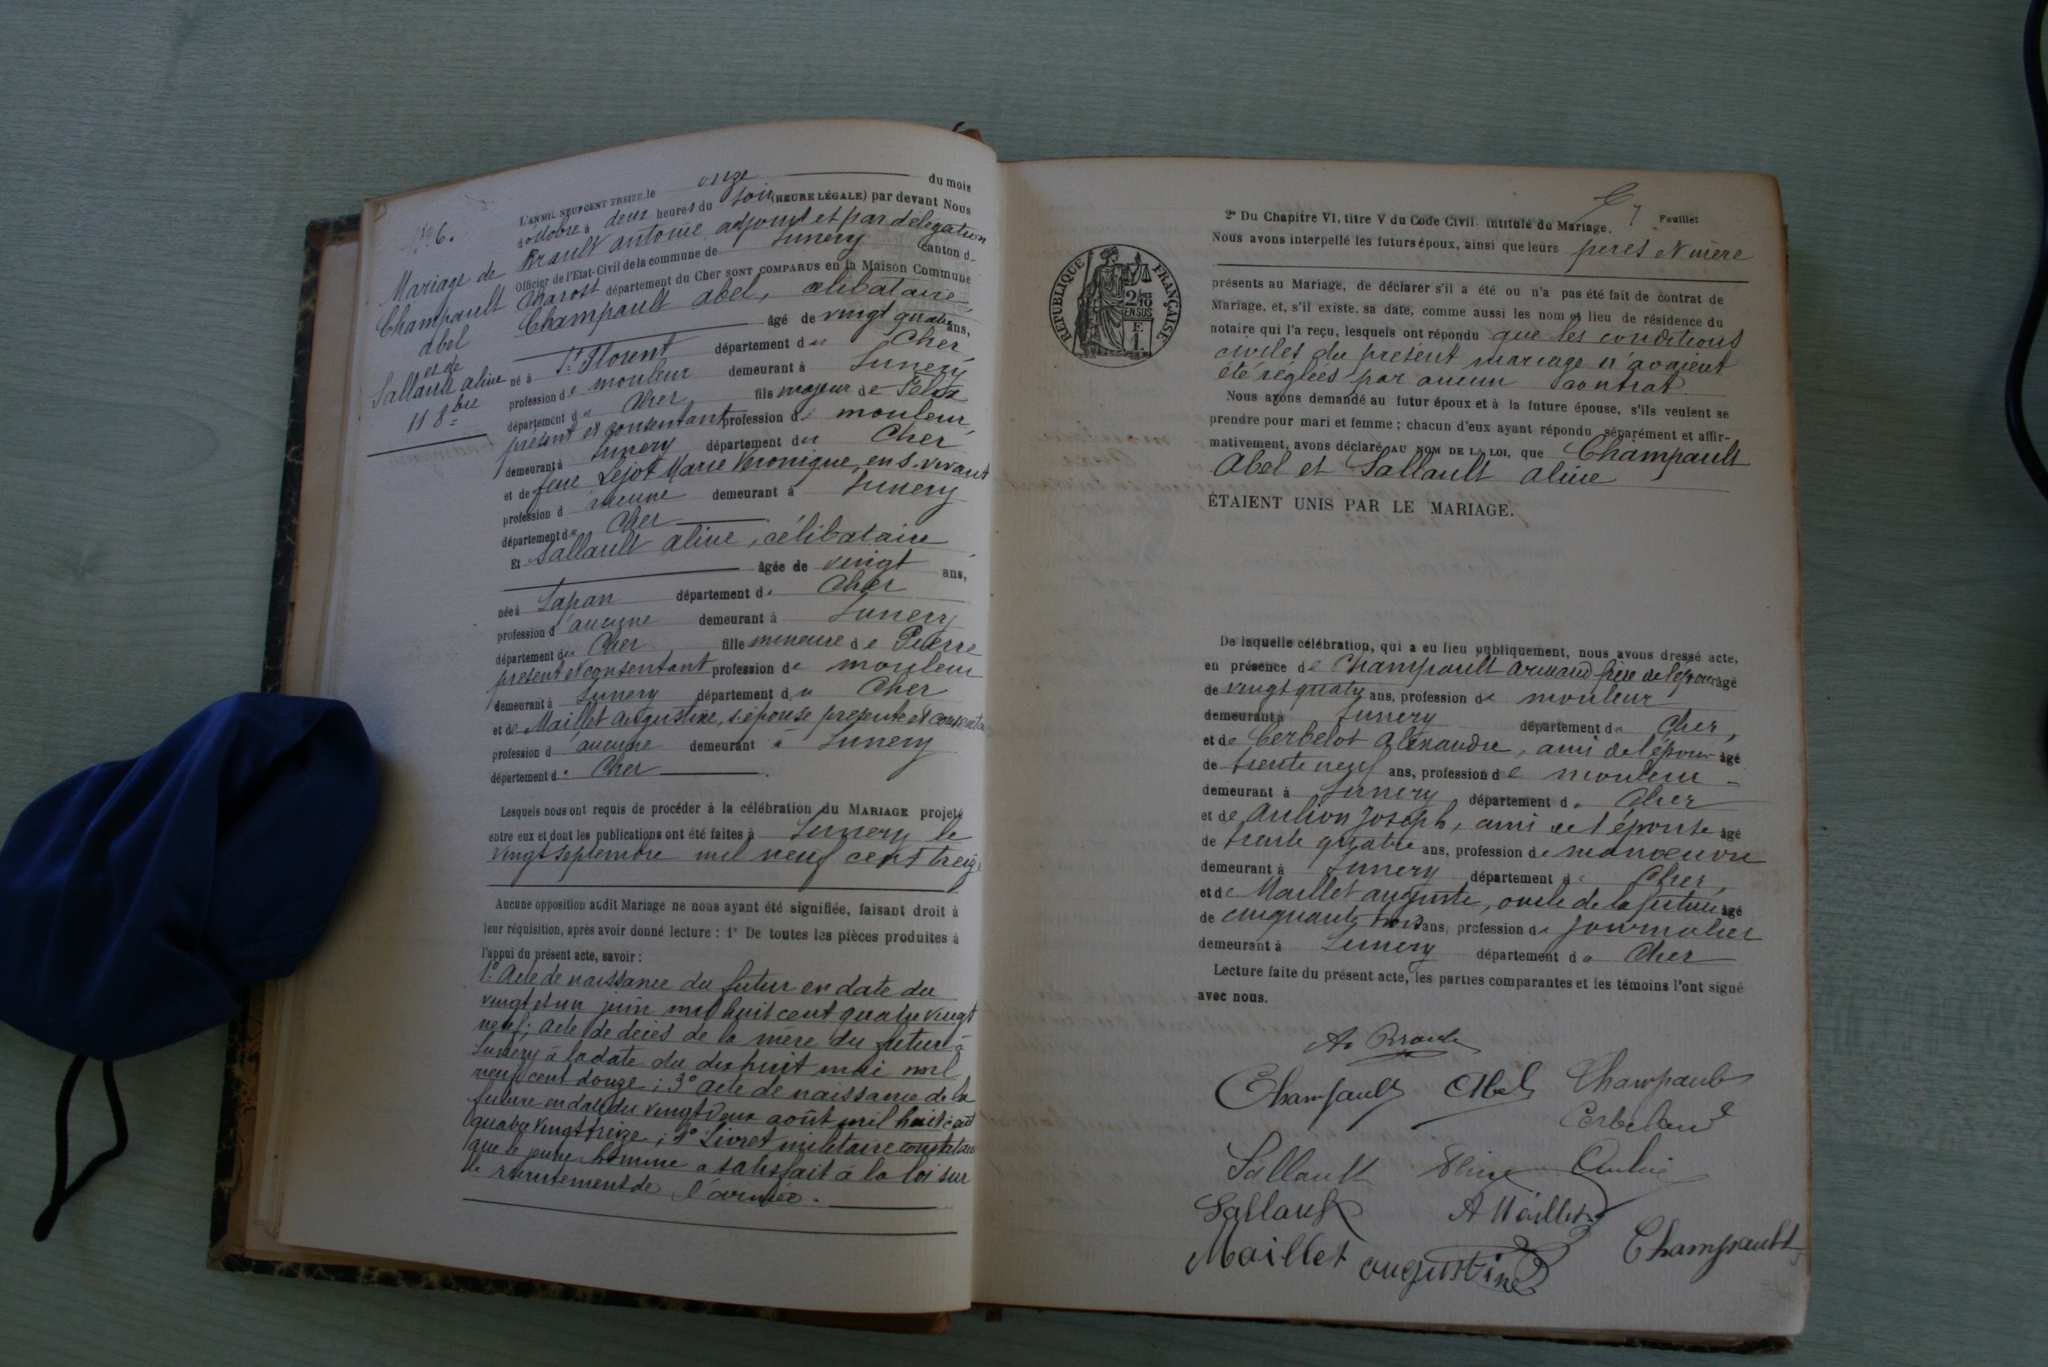 N° 6.
Mariage de
Champault
abel
et de
Sallault aline
11 8bre
L'AN MIL NEUF CENT TREIZE, le onze du mois
d'octobre à deux heures du soir (HEURE LÉGALE) par devant Nous
Brault antoine adjoint et par délégation
Officier de l'Etat-Civil de la commune de Lunery canton de
Charost département du Cher SONT COMPARUS en la Maison Commune
Champault abel, célibataire,
âgé de vingt quatre ans,
né à St Florent département du Cher,
profession de mouleur demeurant à Lunery
département du Cher, fils majeur de
présent et consentant profession de mouleur,
demeurant à Lunery département du Cher
et de feue Lejot Marie Véronique, en s. vivant
profession d aucune demeurant à Lunery
département du Cher
Et Sallault aline, célibataire
âgée de vingt ans,
née à Lapan département du Cher
profession d aucune demeurant à Lunery
département du Cher fille mineure de Pierre
présent et consentant profession de mouleur
demeurant à Lunery département du Cher
et de Maillet Augustine, s. épouse présente et consentante
profession d aucune demeurant à Lunery
département du Cher.
Lesquels nous ont requis de procéder à la célébration du MARIAGE projeté
entre eux et dont les publications ont été faites à Lunery le
vingt septembre mil neuf cent treize
Aucune opposition audit Mariage ne nous ayant été signifiée, faisant droit à
leur réquisition, après avoir donné lecture : 1° De toutes les pièces produites à
l'appui du présent acte, savoir :
1° Acte de naissance du futur en date du
vingt et un juin mil huit cent quatre vingt
neuf; Acte de décès de la mère du futur à
Lunery à la date du dix huit mai mil
neuf cent douze; 3° acte de naissance de la
future en date du vingt deux août mil huit cent
quatre vingt treize; 4° Livret militaire constatant
que le jeune homme a satisfait à la loi sur
le recrutement de l'armée.
7 Feuillet
2° Du Chapitre VI, titre V du Code Civil intitulé du Mariage.
Nous avons interpellé les futurs époux, ainsi que leurs pères et mère
RÉPUBLIQUE FRANÇAISE
2/10 EN SUS
F. 1.
présents au Mariage, de déclarer s'il a été ou n'a pas été fait de contrat de
Mariage, et, s'il existe, sa date, comme aussi les nom et lieu de résidence du
notaire qui l'a reçu, lesquels ont répondu que les conditions
civiles du présent mariage n'avaient
été réglées par aucun contrat.
Nous avons demandé au futur époux et à la future épouse, s'ils veulent se
prendre pour mari et femme ; chacun d'eux ayant répondu séparément et affir-
mativement, avons déclaré AU NOM DE LA LOI, que Champault
Abel et Sallault aline
ÉTAIENT UNIS PAR LE MARIAGE.
De laquelle célébration, qui a eu lieu publiquement, nous avons dressé acte,
en présence de Champault Armand frère de l'époux âgé
de vingt quatre ans, profession de mouleur
demeurant à Lunery département du Cher,
et de Cerbelot Alexandre, ami de l'époux âgé
de trente neuf ans, profession de mouleur
demeurant à Lunery département du Cher
et de Aulion Joseph, ami de l'épouse âgé
de trente quatre ans, profession de manoeuvre
demeurant à Lunery département du Cher,
et de Maillet auguste, oncle de la future âgé
de cinquante trois ans, profession de journalier
demeurant à Lunery département du Cher
Lecture faite du présent acte, les parties comparantes et les témoins l'ont signé
avec nous.
Champault Abel Champault
Sallault Aline
Sallault A Maillet
Maillet augustine Champault